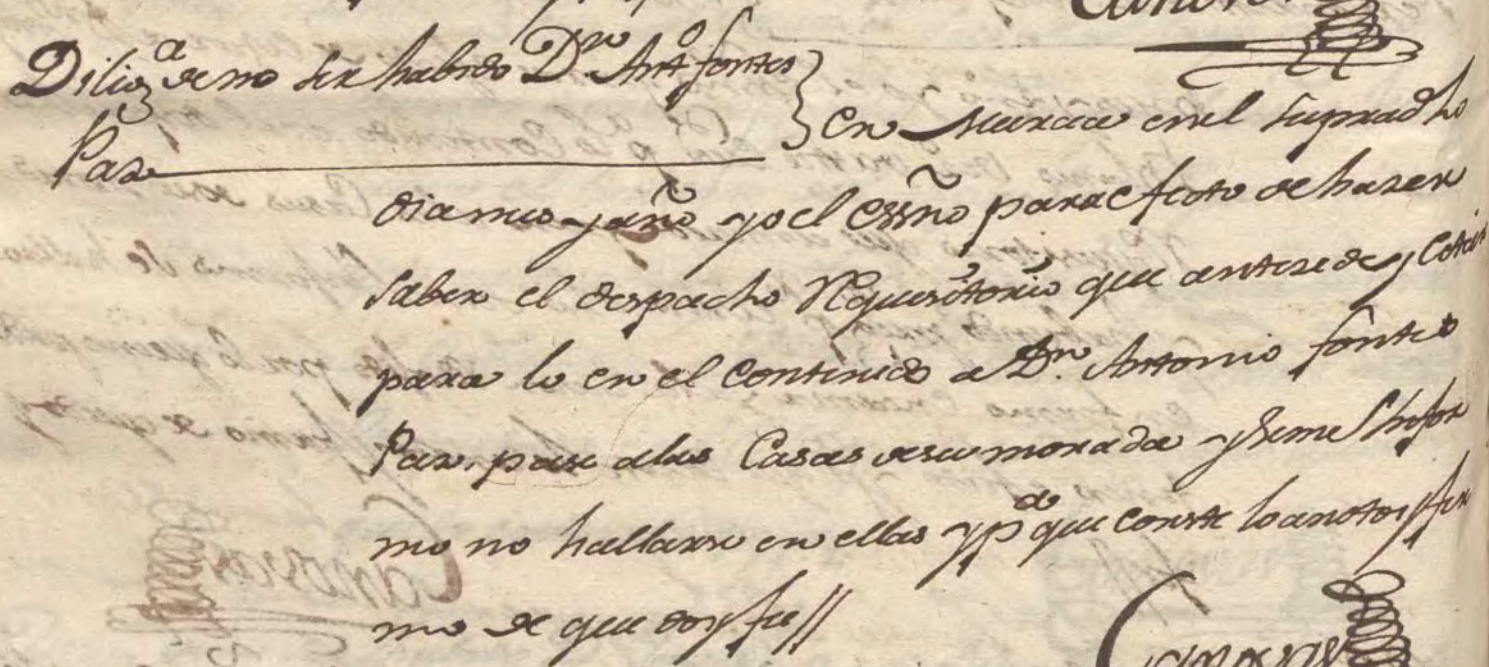 Canov
Dilig.ª de no ser habido D.n Ant.º fontes
Paz
En Murcia en el supradho
dia mes y año yo el essno para efecto de hazer
saber el despacho Requisitorio que antezede y Cita
para lo en el Contenido a D.n Antonio fontes
Paz. pase a las Casas de su morada y se me Infor
mo no hallarse en ellas y p.ª que conste lo anoto y fir
mo de que doy fee//
Canovas